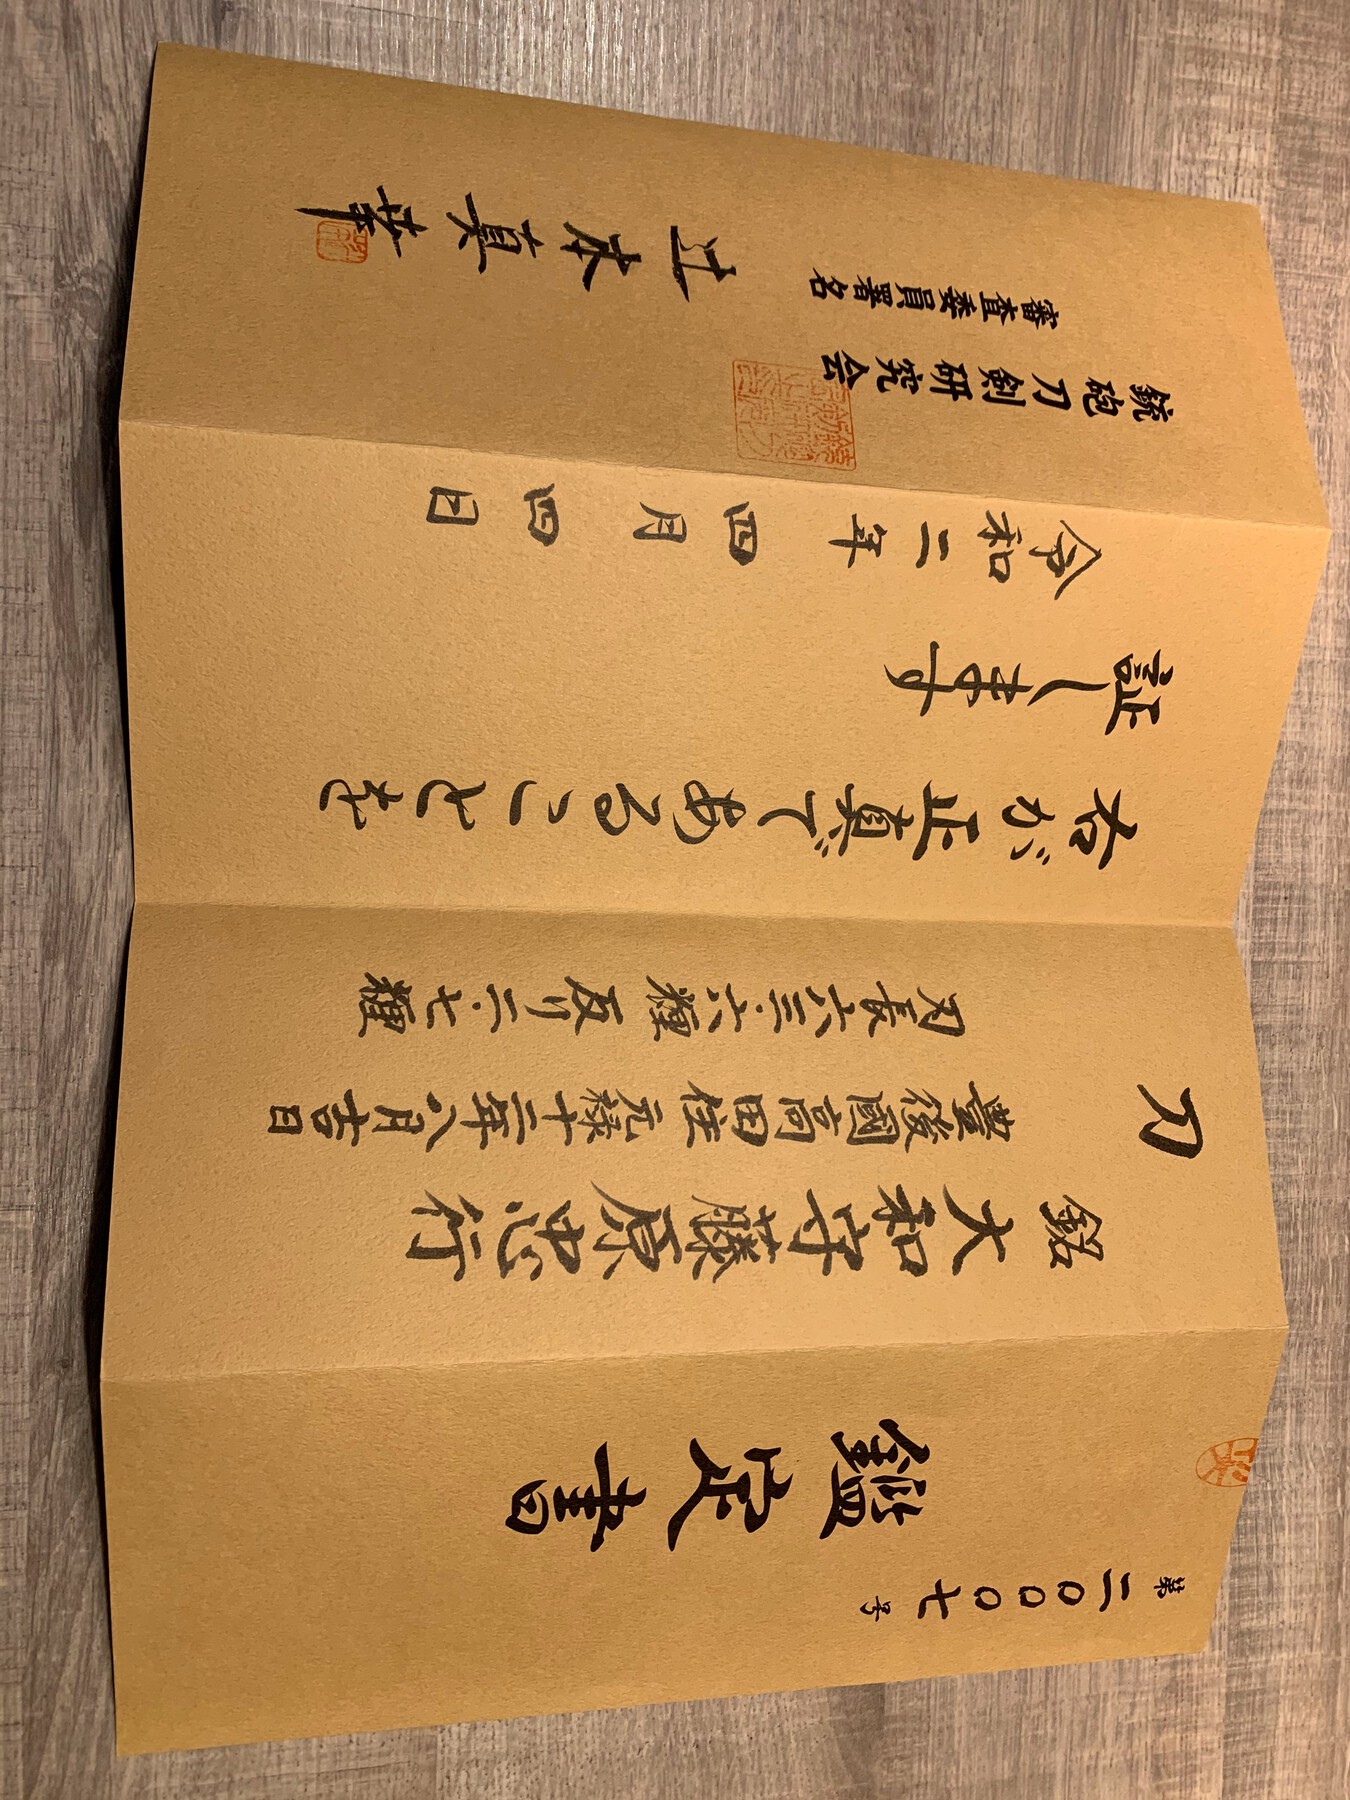 第二〇〇〇七号
鑑定書
刀
銘 大和守藤原忠行
豊後國高田住 元禄十二年八月吉日
刃長六三・六糎 反り二・七糎
右が正真であることを
証します
令和二年四月四日
銃砲刀剣研究会
審査委員署名
辻本